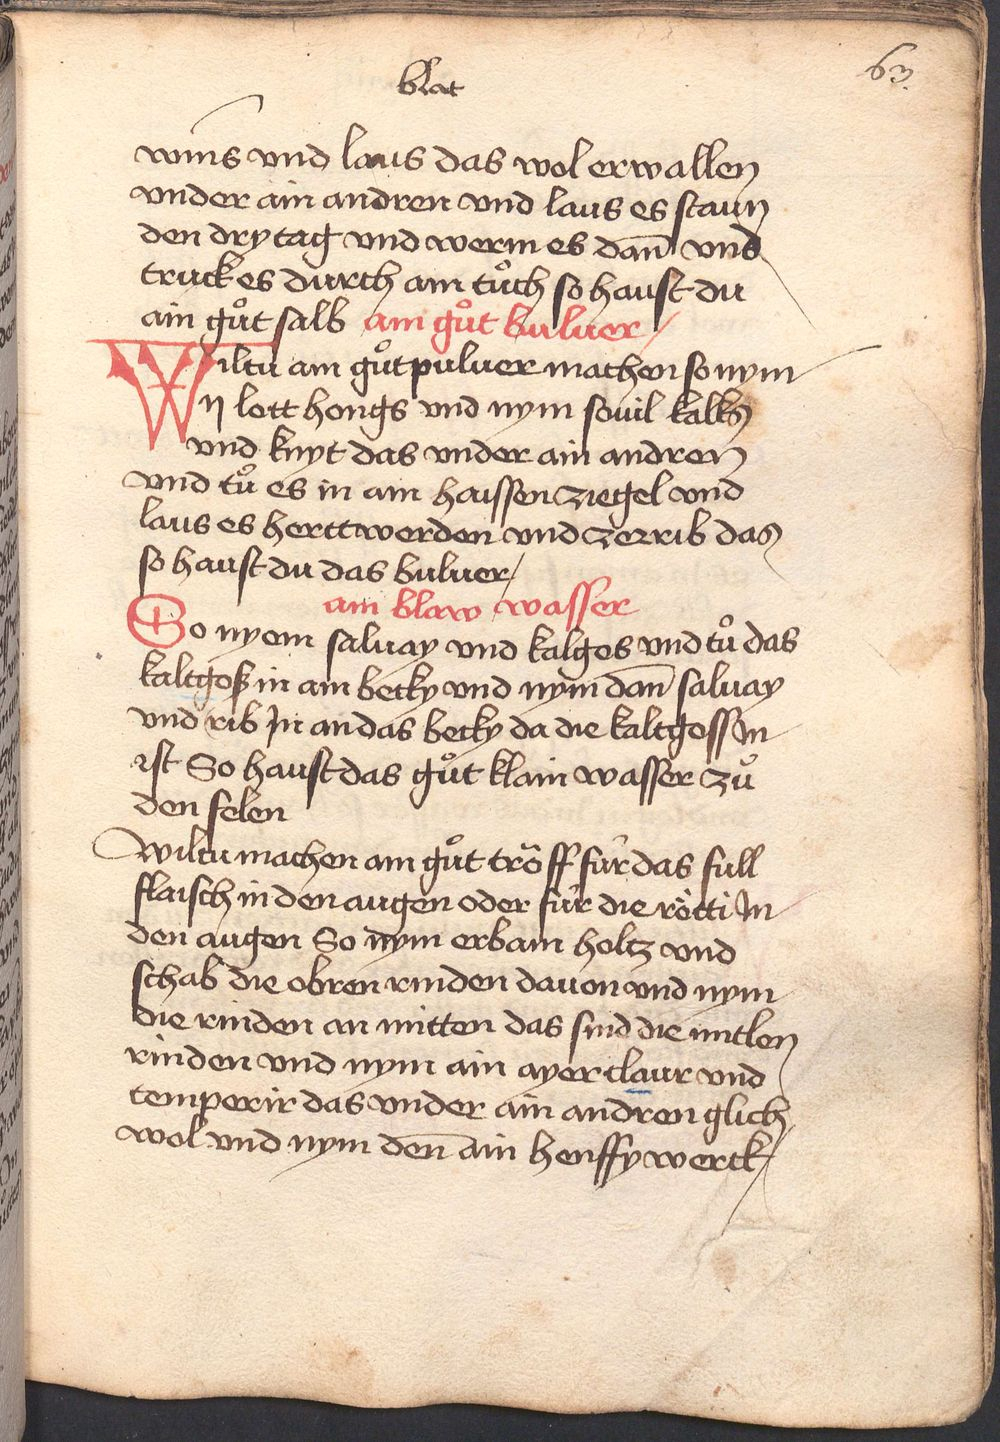 blat
63.
wins vnd laus das wol erwallen
vnder ain andren vnd laus es staun
den dry tag vnd werm es dan̄ vnd
truck es durch ain tůch so haust du
ain gůt salb ain gůt buluer
Wiltu ain gůt puluer machen so nym
ij lott hongs vnd nym souil kalks
vnd knyt das vnder ain andren
vnd tů es in ain haissen ziegel vnd
laus es hertt werden vnd zerrib das
so haust du das buluer
ain blaw wasser
So nyem saluay vnd kalges vnd tů das
kaltgoß in ain becky vnd nym dan̄ saluay
vnd rib Jn an das becky da die kaltgoss Jn
ist So haust das gůt klain wasser zů
den felen
Wiltu machen ain gůt trôff für das full
flaisch in den augen oder für die rötti Jn
den augen So nym erbain holtz vnd
schab die obren rinden dauon vnd nym
die rinden an mitten das sind die mitlen
rinden vnd nym ain ayer claur vnd
temperir das vnder ain andren glich
wol vnd nym den̄ ain henffy werck